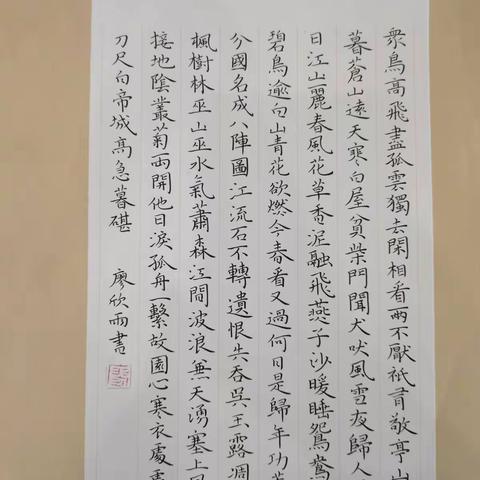 衆鳥高飛盡孤雲獨去閑相看兩不厭祇有敬亭山
暮蒼山遠天寒白屋貧柴門聞犬吠風雪夜歸人
日江山麗春風花草香泥融飛燕子沙暖睡鴛鴦
碧鳥逾白山青花欲燃今春看又過何日是歸年功蓋
分國名成八陣圖江流石不轉遺恨失吞吳玉露凋
楓樹林巫山巫水氣蕭森江間波浪兼天湧塞上風
接地陰叢菊兩開他日淚孤舟一繫故園心寒衣處處
刀尺白帝城高急暮碪 廖欣雨書